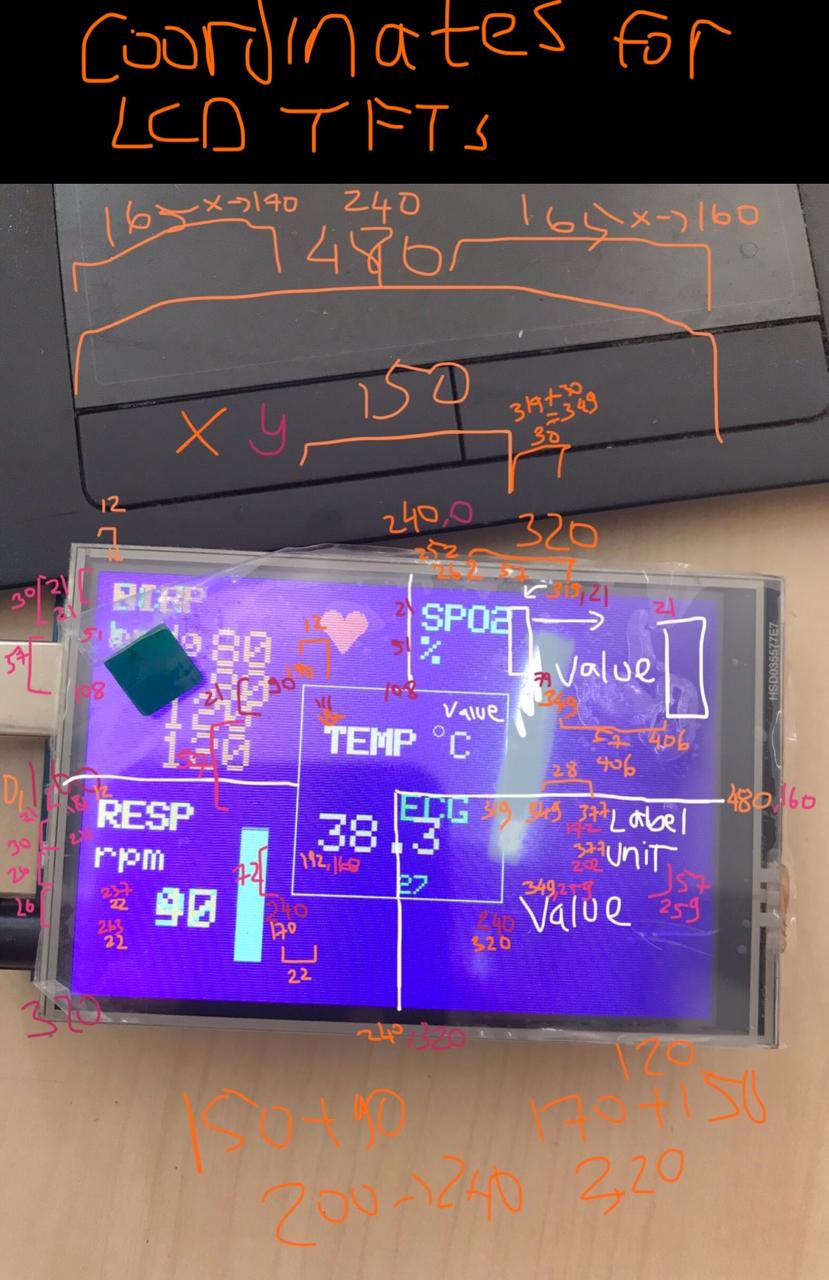 Coordinates for
LCD TFTs
165 x→170 240 165 x→160
480
150
X y
319+30
=349
30
12
7
240,0 320
252
262 57 315,21
30 21
21
NIBP
12
21 SPO2 21
51 80
57 % 51 Value
79
108 21 90 108 349
120 Value
TEMP °C 57 406
406
28
480,160
RESP ECG 319 349 377 Label
172
30 rpm 38.3 377 Unit
202
26 72 192,168
237
22 27 349,259 157
259
26 90 240 Value
170 240
320
263
22
22
320
240,320
120
150+90 170+150
200→240 320
HSD035577E7